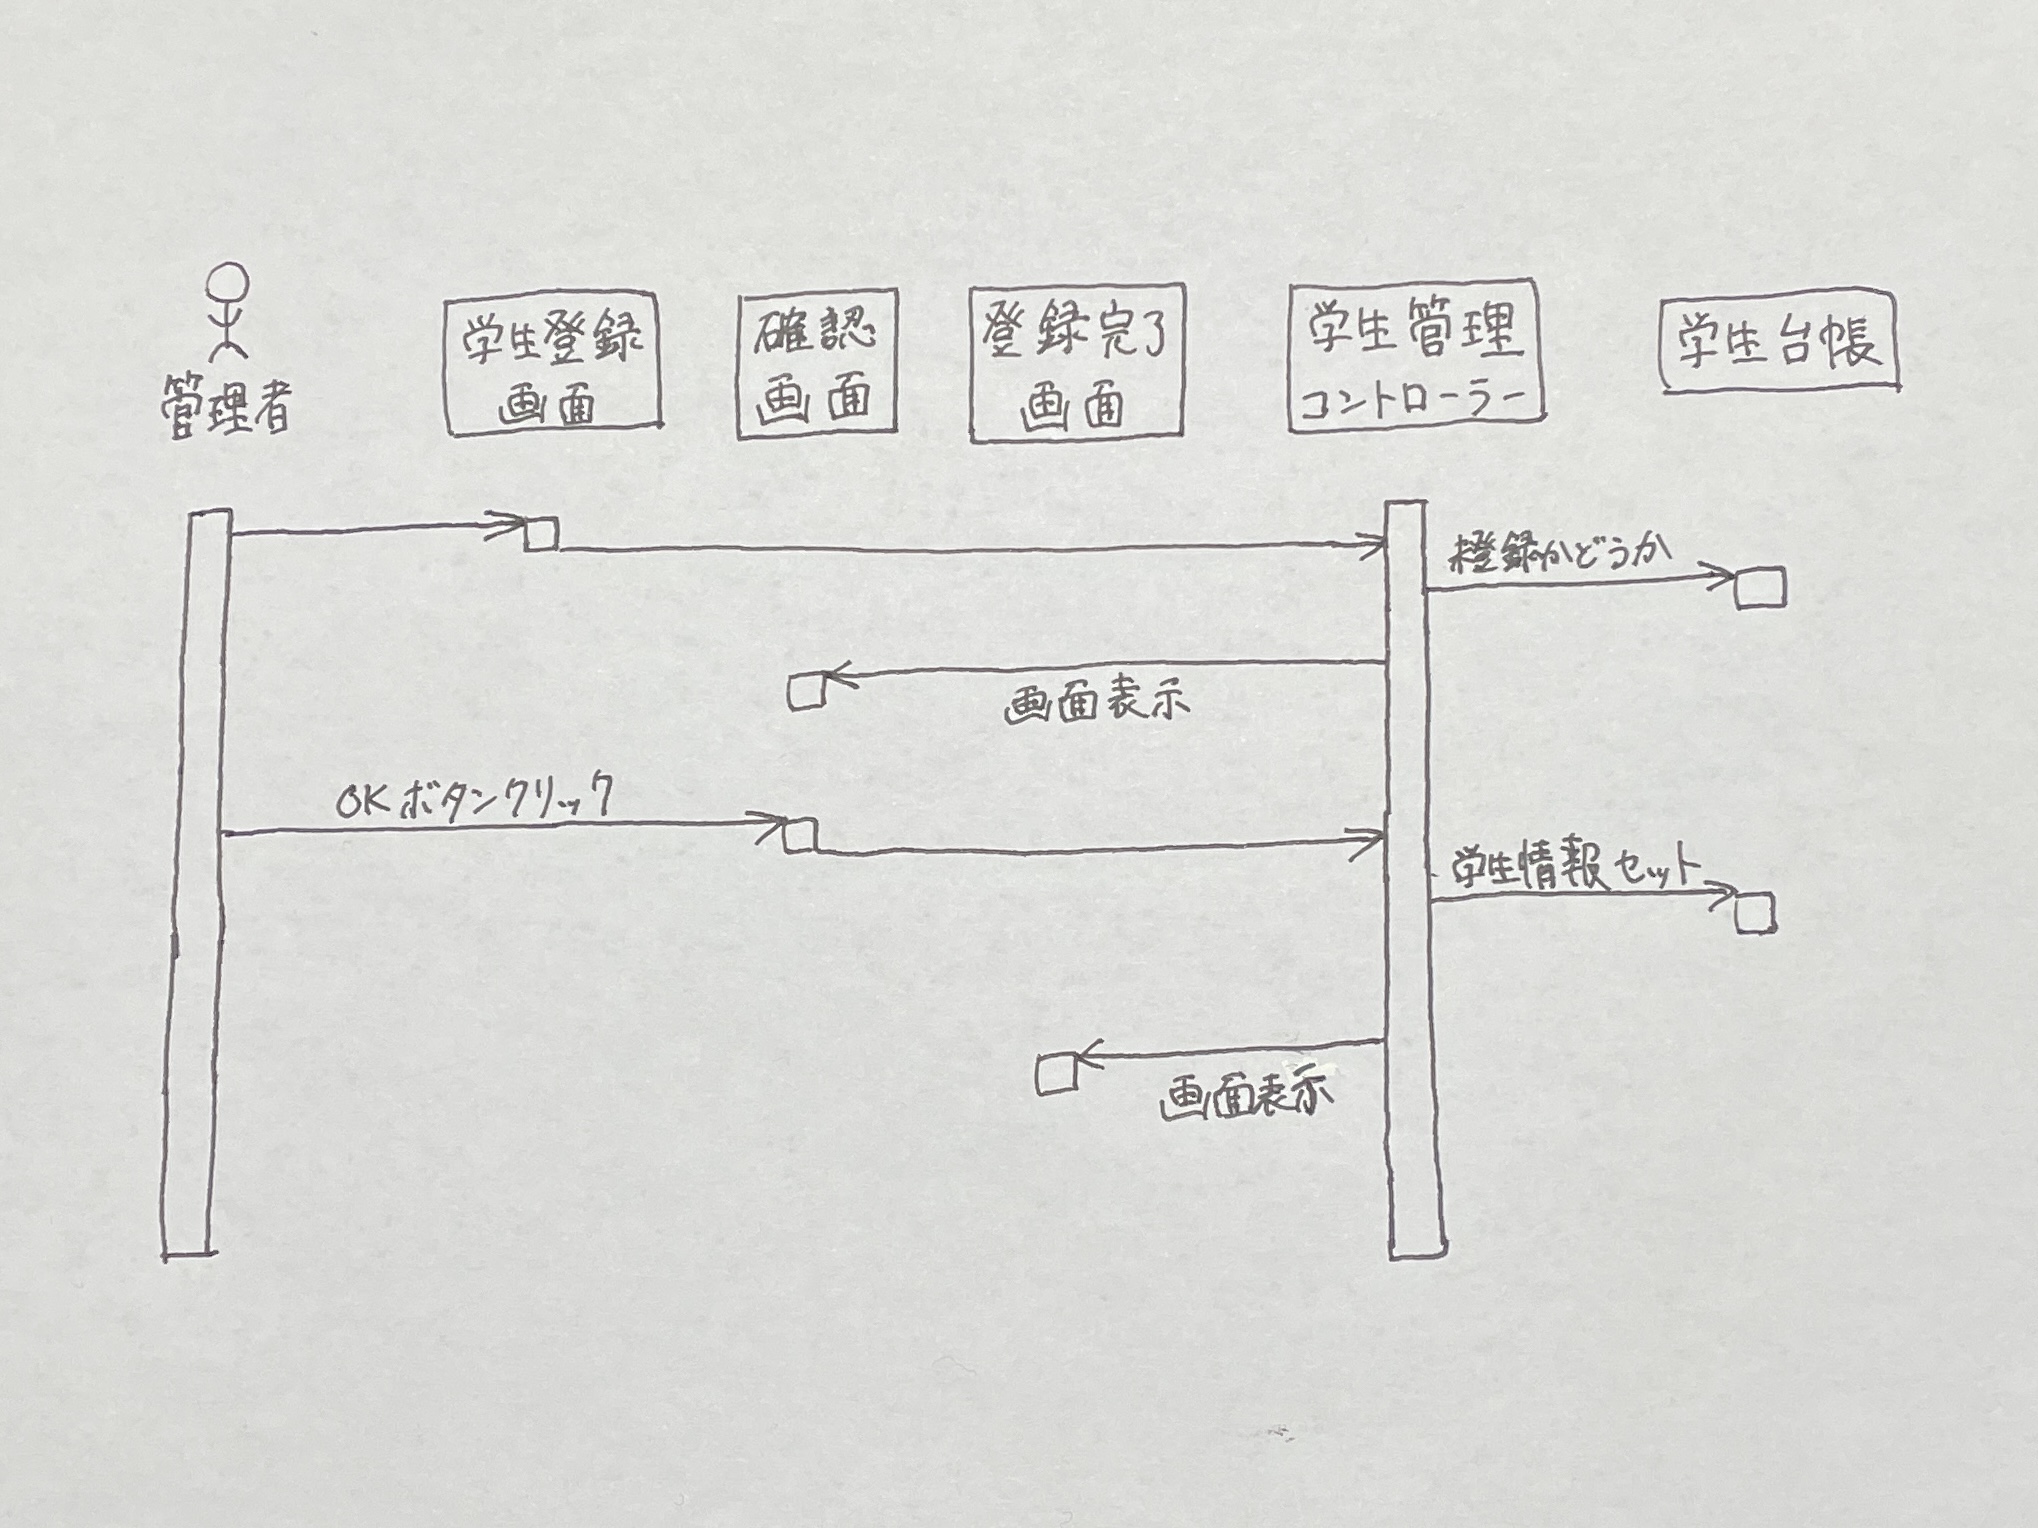 管理者
学生登録
画面
確認
画面
登録完了
画面
学生管理
コントローラー
学生台帳
橙録かどうか
画面表示
OKボタンクリック
学生情報セット
画面表示